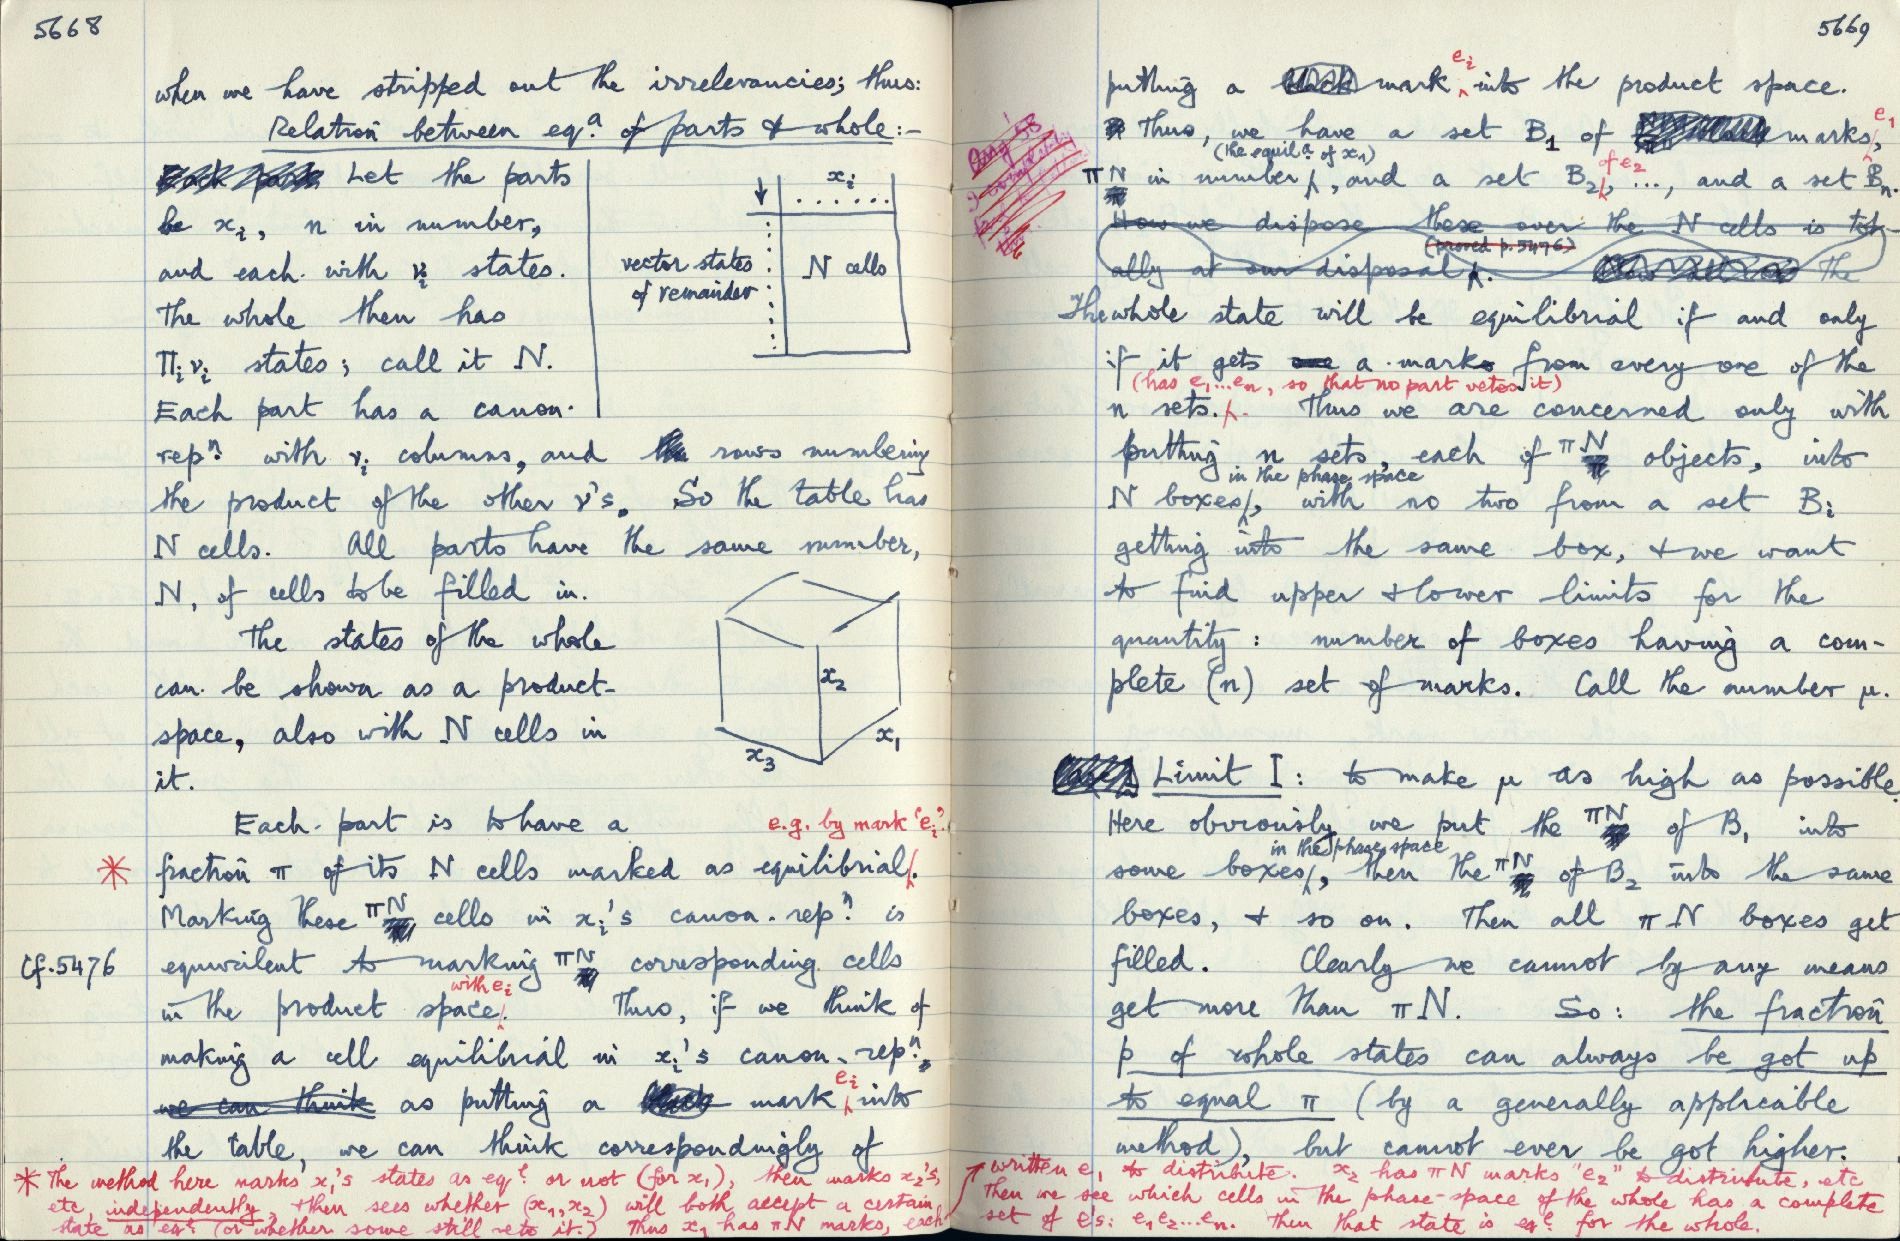 5668
when we have stripped out the irrelevancies; thus:
Relation between eqᵃ of parts & whole:-
Let the parts
be xᵢ, n in number,
and each with νᵢ states.
The whole then has
Πᵢνᵢ states; call it N.
Each part has a canon.
xᵢ
vector states
of remainder
N cells
repⁿ with νᵢ columns, and rows numbering
the product of the other ν's. So the table has
N cells. All parts have the same number,
N, of cells to be filled in.
The states of the whole
can be shown as a product-
space, also with N cells in
it.
x₂
x₁
x₃
Each part is to have a
e.g. by mark 'eᵢ'
* fraction π of its N cells marked as equilibrial.
Marking these πN cells in xᵢ's canon. repⁿ is
Cf. 5476
equivalent to marking πN corresponding cells
with eᵢ
in the product space. Thus, if we think of
making a cell equilibrial in xᵢ's canon. repⁿ,
eᵢ
we can think as putting a mark into
the table, we can think correspondingly of
* The method here marks x₁'s states as eqˡ or not (for x₁), then marks x₂'s,
etc, independently, & then sees whether (x₁,x₂) will both accept a certain
state as eqˡ (or whether some still veto it.) Thus x₁ has πN marks, each
5669
eᵢ
putting a mark into the product space.
Aug '58
e₁
Thus, we have a set B₁ of marks,
(the equilᵃ of x₁)
of e₂
πN in number, and a set B₂, ..., and a set Bₙ.
How we dispose these over the N cells is tot-
(proved p. 5476)
ally at our disposal. The
The whole state will be equilibrial if and only
if it gets one a marks from every one of the
(has e₁...eₙ, so that no part vetos it)
n sets. Thus we are concerned only with
putting n sets, each of πN objects, into
in the phase space
N boxes, with no two from a set Bᵢ
getting into the same box, & we want
to find upper & lower limits for the
quantity: number of boxes having a com-
plete (n) set of marks. Call the number μ.
Limit I: to make μ as high as possible.
Here obviously we put the πN of B₁ into
in the phase space
some boxes, then the πN of B₂ into the same
boxes, & so on. Then all πN boxes get
filled. Clearly we cannot by any means
get more than πN. So: the fraction
p of whole states can always be got up
to equal π (by a generally applicable
method), but cannot ever be got higher.
written e₁ to distribute. x₂ has πN marks "e₂" to distribute, etc
Then we see which cells in the phase-space of the whole has a complete
set of e's: e₁e₂...eₙ. Then that state is eqˡ for the whole.